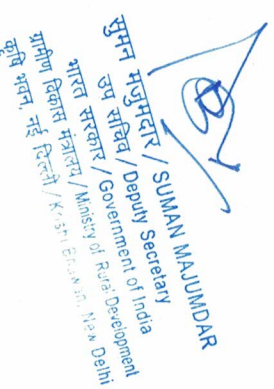 सुमन मजुमदार / SUMAN MAJUMDAR
उप सचिव / Deputy Secretary
भारत सरकार / Government of India
ग्रामीण विकास मंत्रालय / Ministry of Rural Development
कृषि भवन, नई दिल्ली / Krishi Bhawan, New Delhi